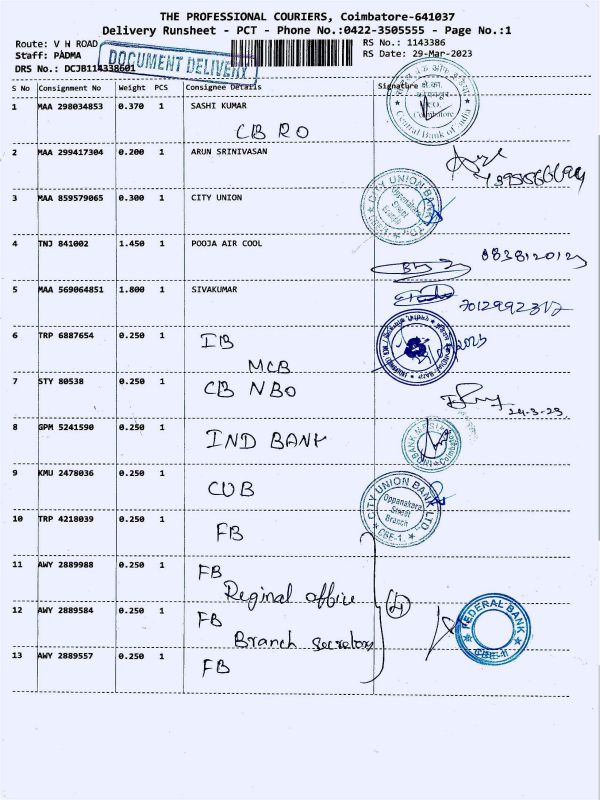 THE PROFESSIONAL COURIERS, Coimbatore-641037
Delivery Runsheet - PCT - Phone No.:0422-3505555 - Page No.:1
Route: V H ROAD
RS No.: 1143386
Staff: PADMA
RS Date: 29-Mar-2023
DRS No.: DCJB114338601
DOCUMENT DELIVERY
S No Consignment No Weight PCS Consignee Details Signature
1 MAA 298034853 0.370 1 SASHI KUMAR
CB RO
Coimbatore
Central Bank of India
2 MAA 299417304 0.200 1 ARUN SRINIVASAN
3 MAA 859579065 0.300 1 CITY UNION
CITY UNION BANK LTD.
Oppanakara
Street
Branch
CBE-1
4 TNJ 841002 1.450 1 POOJA AIR COOL
5 MAA 569064851 1.800 1 SIVAKUMAR
6 TRP 6887654 0.250 1 IB
MCB
7 STY 80538 0.250 1 CB NBO
8 GPM 5241590 0.250 1 IND BANK
9 KMU 2478036 0.250 1 CUB
CITY UNION BANK LTD.,
Oppanakara
Street
Branch
CBE-1
10 TRP 4218039 0.250 1 FB
11 AWY 2889988 0.250 1 FB
Reginal office
4
12 AWY 2889584 0.250 1 FB
Branch secretory
FEDERAL BANK
13 AWY 2889557 0.250 1 FB